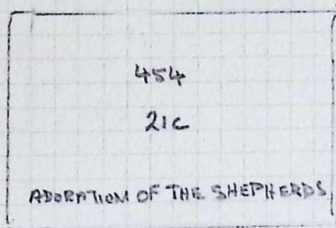 454
21c
ADORATION OF THE SHEPHERDS